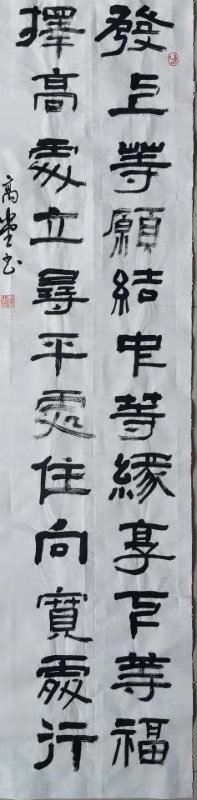 發上等願結中等緣享下等福
擇高處立尋平處住向寬處行
高堂书